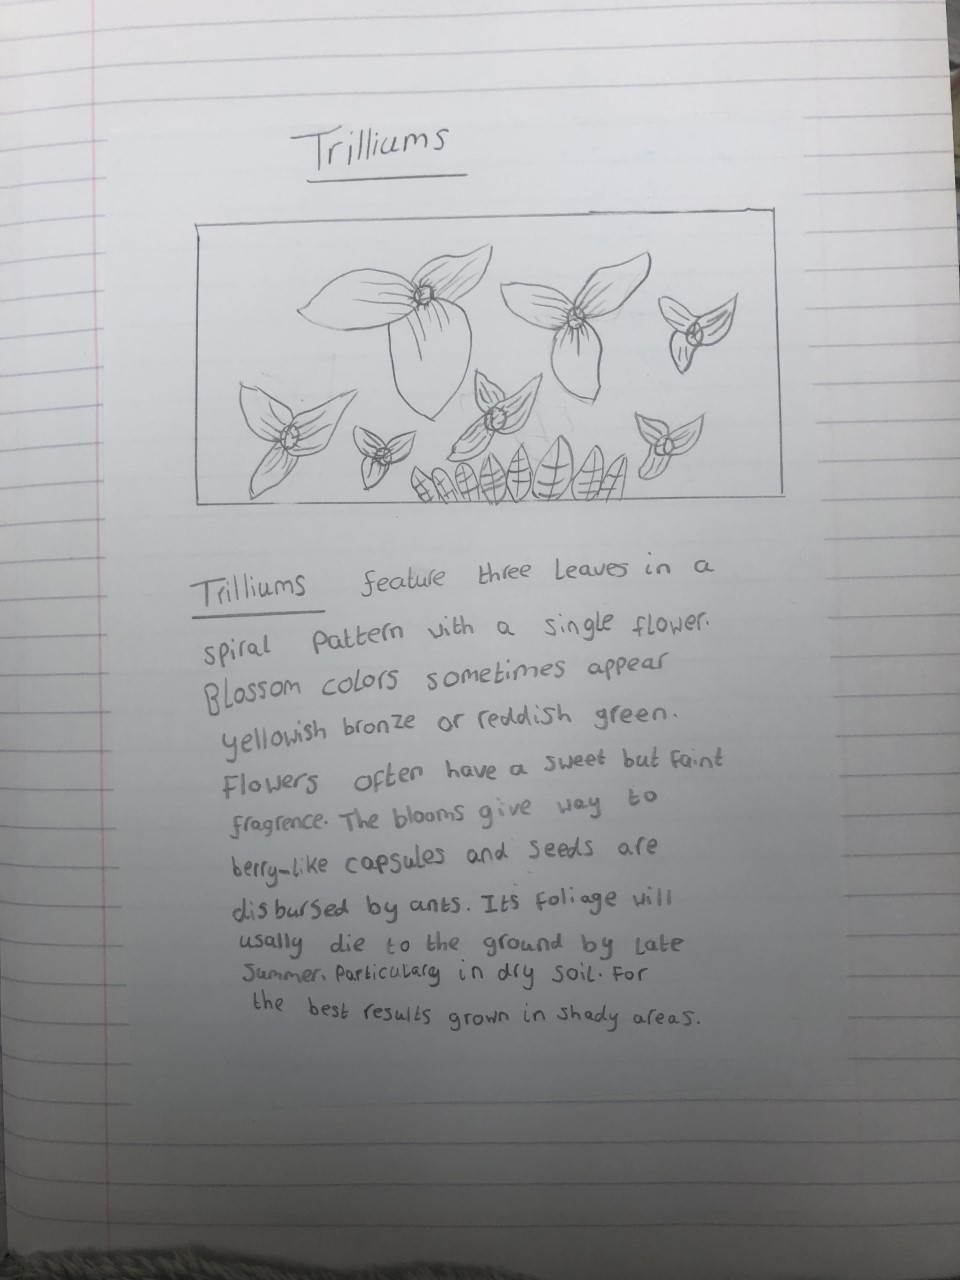 Trilliums
Trilliums feature three leaves in a
spiral pattern with a single flower.
Blossom colors sometimes appear
yellowish bronze or reddish green.
Flowers often have a sweet but faint
fragrence. The blooms give way to
berry-like capsules and seeds are
disbursed by ants. Its foliage will
usally die to the ground by late
summer. Particularg in dry soil. For
the best results grown in shady areas.